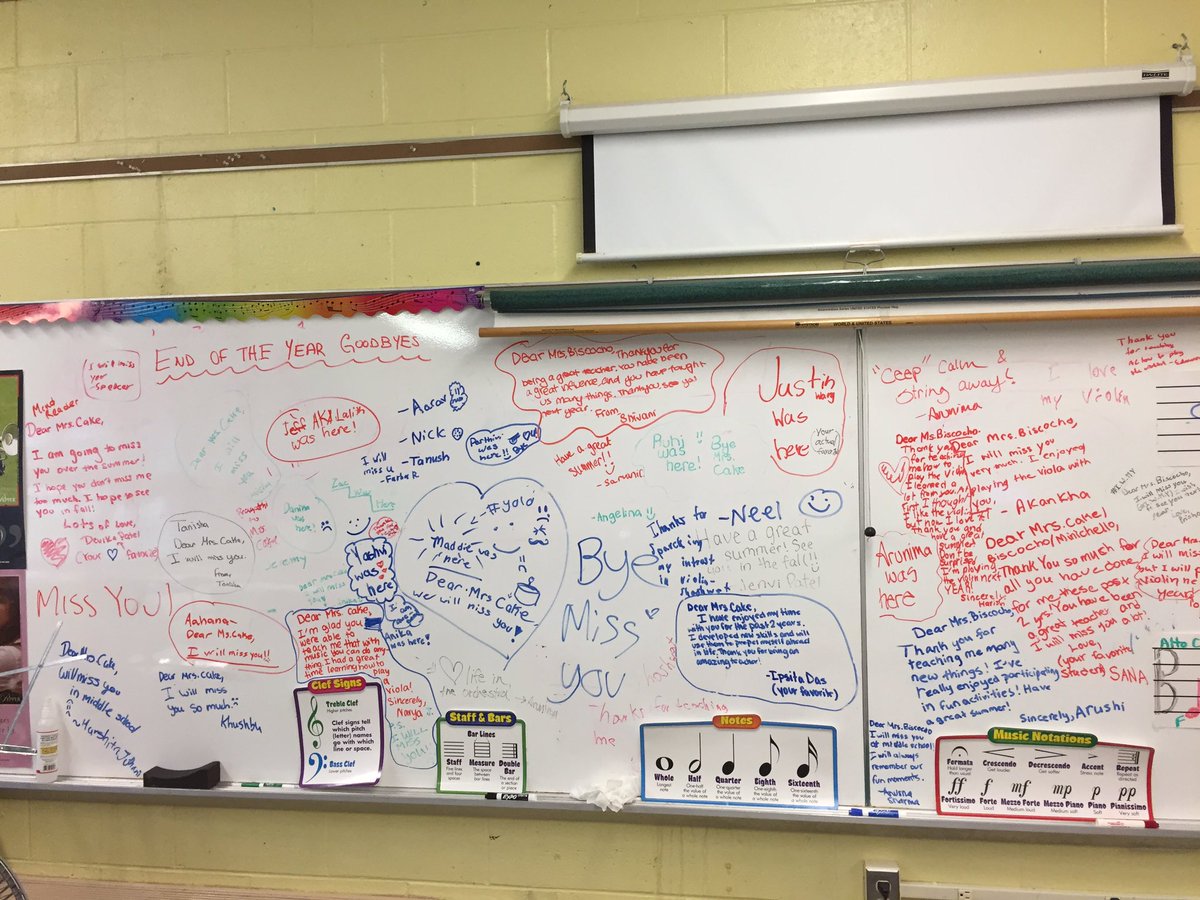 END OF THE YEAR GOODBYES
I will miss
you
-Spencer
Mind
Reader
Dear Mrs. Cake,
I am going to miss
you over the summer!
I hope you don't miss me
too much. I hope to see
you in fall!
Lots of love,
Devika Patel
(Your favorite)
MISS YOU!
Dear Mrs. Cake,
I will
miss
you
Tanisha
Dear Mrs. Cake,
I will miss you.
from
Tanisha
Aahana-
Dear Ms. Cake,
I will miss you!!
Dear Ms. Cake,
will miss you
in middle school
Dear Mrs. Cake,
I will miss
you so much.
Khushbu
Jeff AKA Lalith
was here!
was
here!
-Aarav
-Nick
-Tanush
I will
miss u
-Farba R
Parthin
was
here!!
Bye
Zac
Was
Here
Yashvi
was
here
I am
Anika
was here!
#yolo
-Maddie was
here!
Dear Mrs. Cake
we will miss
you!
Dear Mrs. Cake,
I'm glad you
were able to
teach me that with
music you can do any-
thing I had a great
time learning how to
play a
viola!
Sincerely,
Navya
P.S.
I WILL
MISS
you!
life in
the orchestra
Dear Mrs. Biscocho, Thank you for
being a great teacher. You have been
a great influence, and you have taught
us many things. Thank you, see you
next year. From Shivani
Have a great
summer!!
-Samanic
Ruhi
was
here!
Bye
Mrs.
Cake
Justin
Wang
was
here
-Your
actual
favorite
-Angelina
Thanks for
sparching
my intrest
in violin-
-Neel
Have a great
summer! See
you in the fall!!
Jenvi Patel
Bye
Miss
you
Dear Mrs. Cake,
I have enjoyed my time
with you for the past 2 years.
I developed new skills and will
use them to propel myself ahead
in life. Thank you for being an
amazing teacher!
-Ipsita Das
(your favorite)
-Thanks for teaching
me
"Ceep" Calm &
String away!
-Arunima
I love
my violin
Thank you
for teaching
me how to play
Dear Ms. Biscocho,
Thank you
for teaching
me how to
play the viola
I learned a
lot from you. At
first I thought
I like the violin
but now I love it
Thank you and
have a great
summer!
Sincerely,
Harish
Dear Mrs. Biscocho,
I will miss you
very much. I enjoyed
playing the viola with
you,
- Akankha
Don't be
surprised
I'm playing
the violin next
YEAR!
Arunima
was
here
Dear Mrs. Cake/
Biscocho/Minichello,
Thank you so much for
all you have done
for me these past
2 yrs. You have been
a great teacher and
I will miss you a lot!
Love,
(your favorite
student)
SANA
Dear Mrs. Biscocho,
Thank you for
teaching me many
new things! I've
really enjoyed participating
in fun activities! Have
a great summer!
Sincerely, Arushi
Dear Mrs. Biscocho
I will miss you
at middle school
I will always
remember our
fun moments.
-Anusha
Sharma
Dear Mrs. Biscocho,
I will miss you
Dear Mrs.
I will miss
but I will p
violin ne
year!
Clef Signs
Treble Clef
Higher pitches
Clef signs tell
which pitch
(letter) names
go with which
line or space.
Bass Clef
Lower pitches
Staff & Bars
Bar Lines
Staff
Five lines and
four spaces
Measure
The space
between bar
lines
Double
Bar
The end of
a section
or piece
Notes
Whole
Longest
note
Half
One-half
the value of
a whole note
Quarter
One-quarter
the value of
a whole note
Eighth
One-eighth
the value of
a whole note
Sixteenth
One-sixteenth
the value of
a whole note
Music Notations
Fermata
Hold longer
than usual
Crescendo
Get louder
Decrescendo
Get softer
Accent
Stress note
Repeat
Repeat as
directed
ff
f
mf
mp
p
pp
Fortissimo
Very loud
Forte
Loud
Mezzo Forte
Medium loud
Mezzo Piano
Medium soft
Piano
Soft
Pianissimo
Very soft
Alto C
WORLD & UNITED STATES
EXPO